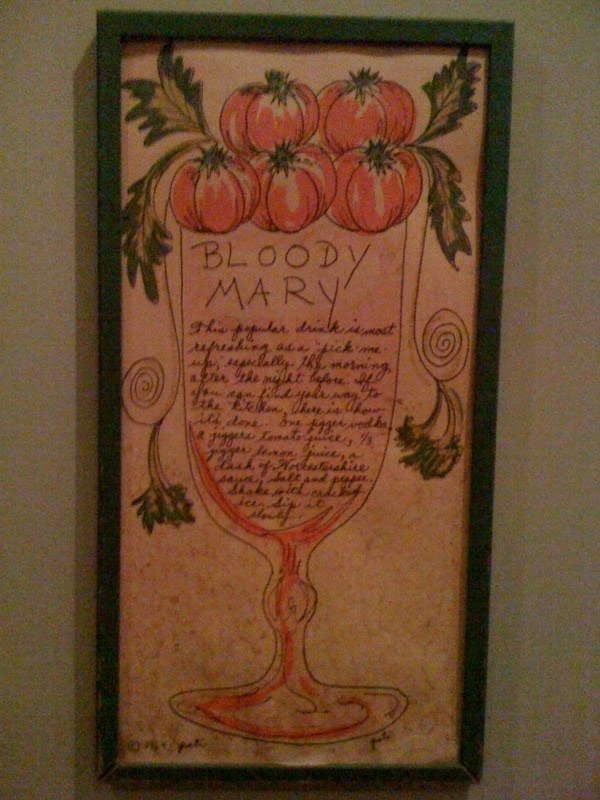 BLOODY
MARY
This popular drink is most
refreshing as a "pick-me-
up," especially the morning
after the night before. If
you can find your way to
the kitchen, here is how
it's done. One jigger vodka,
2 jiggers tomato juice, 1/3
jigger lemon juice, a
dash of Worcestershire
sauce, salt and pepper.
Shake with cracked
ice. Sip it
slowly.